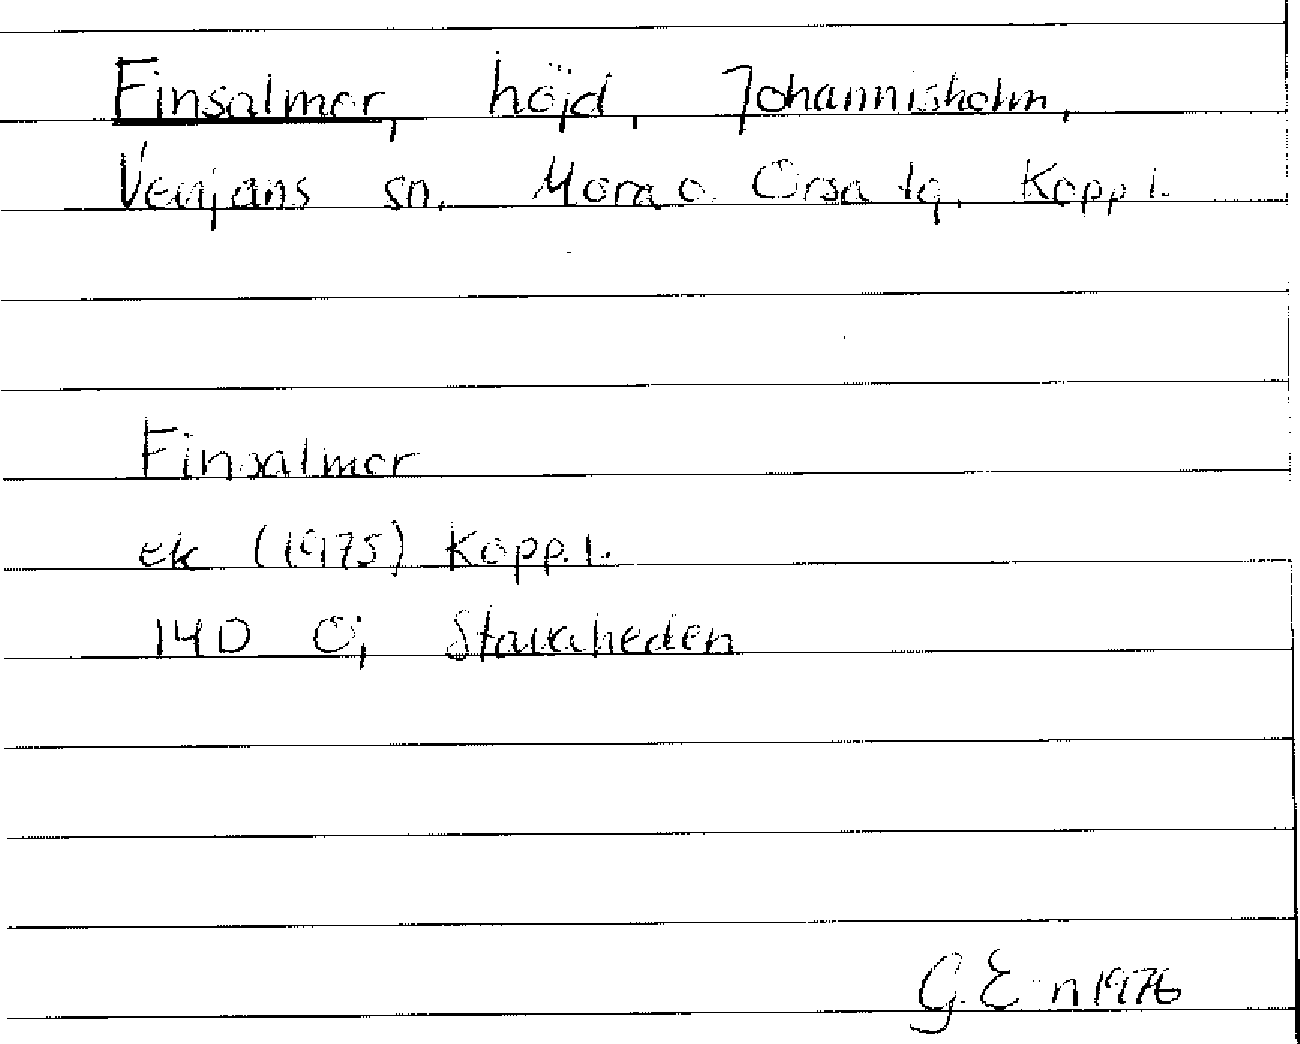 Finsalmor, höjd, Johannisholm,
Venjans sn, Mora o. Orsa tg. Kopp l.
Finsalmor
ek (1975) Kopp. l.
14D Öj Stavaheden
G. E-n 1976